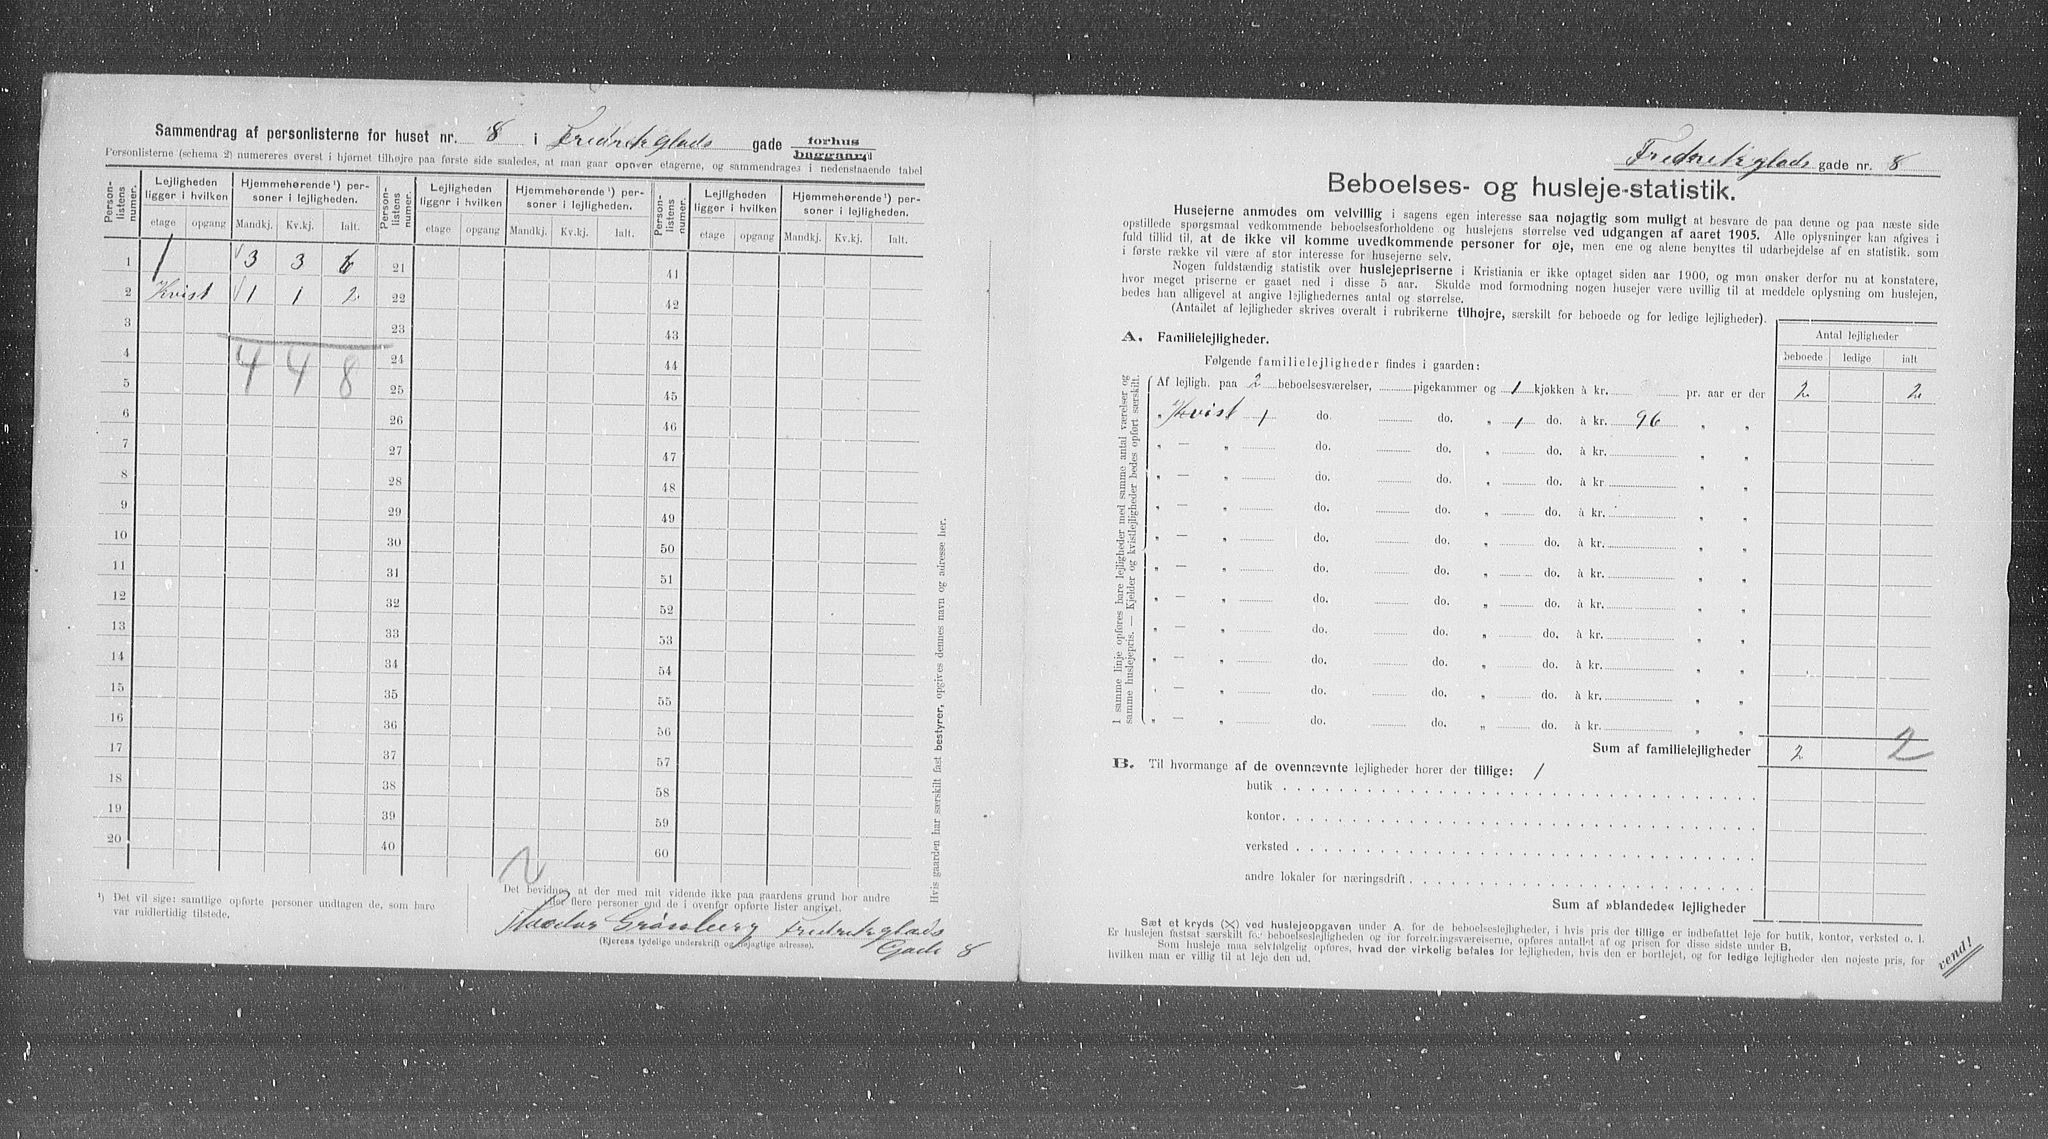 Sammendrag af personlisterne for huset nr. 8 i Fredriksglads gade forhus baggaard
Personlisterne (schema 2) numereres øverst i hjørnet tilhøjre paa første side saaledes, at man gaar opover etagerne, og sammendrages i nedenstaaende tabel
Person-listens numer. Lejligheden ligger i hvilken Hjemmehørende ¹) personer i lejligheden. Person-listens numer. Lejligheden ligger i hvilken Hjemmehørende ¹) personer i lejligheden. Person-listens numer. Lejligheden ligger i hvilken Hjemmehørende ¹) personer i lejligheden.
etage opgang Mandkj. Kv.kj. Ialt. etage opgang Mandkj. Kv.kj. Ialt. etage opgang Mandkj. Kv.kj. Ialt.
1 1 3 3 6 21 41
2 Kvist 1 1 2 22 42
3 23 43
4 4 4 8 24 44
5 25 45
6 26 46
7 27 47
8 28 48
9 29 49
10 30 50
11 31 51
12 32 52
13 33 53
14 34 54
15 35 55
16 36 56
17 37 57
18 38 58
19 39 59
20 40 60
Hvis gaarden har særskilt fast bestyrer, opgives dennes navn og adresse her.
¹) Det vil sige: samtlige opførte personer undtagen de, som bare
var midlertidig tilstede.
Det bevidnes, at der med mit vidende ikke paa gaardens grund bor andre
eller flere personer end de i ovenfor opførte lister angivet.
Grønberg Fredriksglads
Gade 8
(Ejerens tydelige underskrift og nøjagtige adresse).
Fredriksglads gade nr. 8
Beboelses- og husleje-statistik.
Husejerne anmodes om velvillig i sagens egen interesse saa nøjagtig som muligt at besvare de paa denne og paa næste side
opstillede spørgsmaal vedkommende beboelsesforholdene og huslejens størrelse ved udgangen af aaret 1905. Alle oplysninger kan afgives i
fuld tillid til, at de ikke vil komme uvedkommende personer for øje, men ene og alene benyttes til udarbejdelse af en statistik, som
i første række vil være af stor interesse for husejerne selv.
Nogen fuldstændig statistik over huslejepriserne i Kristiania er ikke optaget siden aar 1900, og man ønsker derfor nu at konstatere,
hvor meget priserne er gaaet ned i disse 5 aar. Skulde mod formodning nogen husejer være uvillig til at meddele oplysning om huslejen,
bedes han alligevel at angive lejlighedernes antal og størrelse.
(Antallet af lejligheder skrives overalt i rubrikerne tilhøjre, særskilt for beboede og for ledige lejligheder).
Antal lejligheder
beboede ledige ialt
A. Familielejligheder.
Følgende familielejligheder findes i gaarden:
I samme linje opføres bare lejligheder med samme antal værelser og
samme huslejepris. — Kjelder og kvistlejligheder bedes opført særskilt.
Af lejligh. paa 2 beboelsesværelser, pigekammer og 1 kjøkken à kr. pr. aar er der 2 2
„ Kvist 1 do. do. „ 1 do. à kr. 96 „ „
„ — „ do. do. „ do. à kr. „ „
„ — „ do. do. „ do. à kr. „ „
„ — „ do. do. „ do. à kr. „ „
„ — „ do. do. „ do. à kr. „ „
„ — „ do. do. „ do. à kr. „ „
„ — „ do. do. „ do. à kr. „ „
„ — „ do. do. „ do. à kr. „ „
„ — „ do. do. „ do. à kr. „ „
„ — „ do. do. „ do. à kr. „ „
„ — „ do. do. „ do. à kr. „ „
Sum af familielejligheder 2 2
B. Til hvormange af de ovennævnte lejligheder hører der tillige: /
butik
kontor
verksted
andre lokaler for næringsdrift
Sum af »blandede« lejligheder
Sæt et kryds (X) ved huslejeopgaven under A. for de beboelseslejligheder, i hvis pris der tillige er indbefattet leje for butik, kontor, verksted o. l.
Er huslejen fastsat særskilt for beboelseslejligheden og for forretningsværelserne, opføres antallet af og prisen for disse sidste under B.
Som husleje maa selvfølgelig opføres, hvad der virkelig betales for lejligheden, hvis den er bortlejet, og for ledige lejligheder den nøjeste pris, for
hvilken man er villig til at leje den ud.
vend!